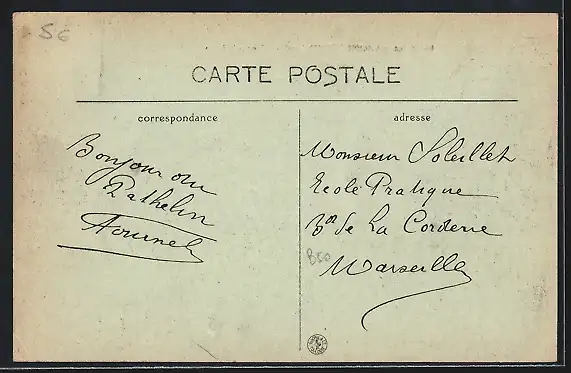 56
CARTE POSTALE
correspondance
Bonjour au
Pathelin
Fournel
adresse
Monsieur Soleillet
Ecole Pratique
Bd de La Corderie
B50
Marseille